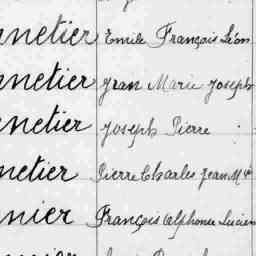 netier Emile François Léon
netier Jean Marie Joseph
netier Joseph Pierre
netier Pierre Charles Jean Mie
nier François Alphonse Lucien